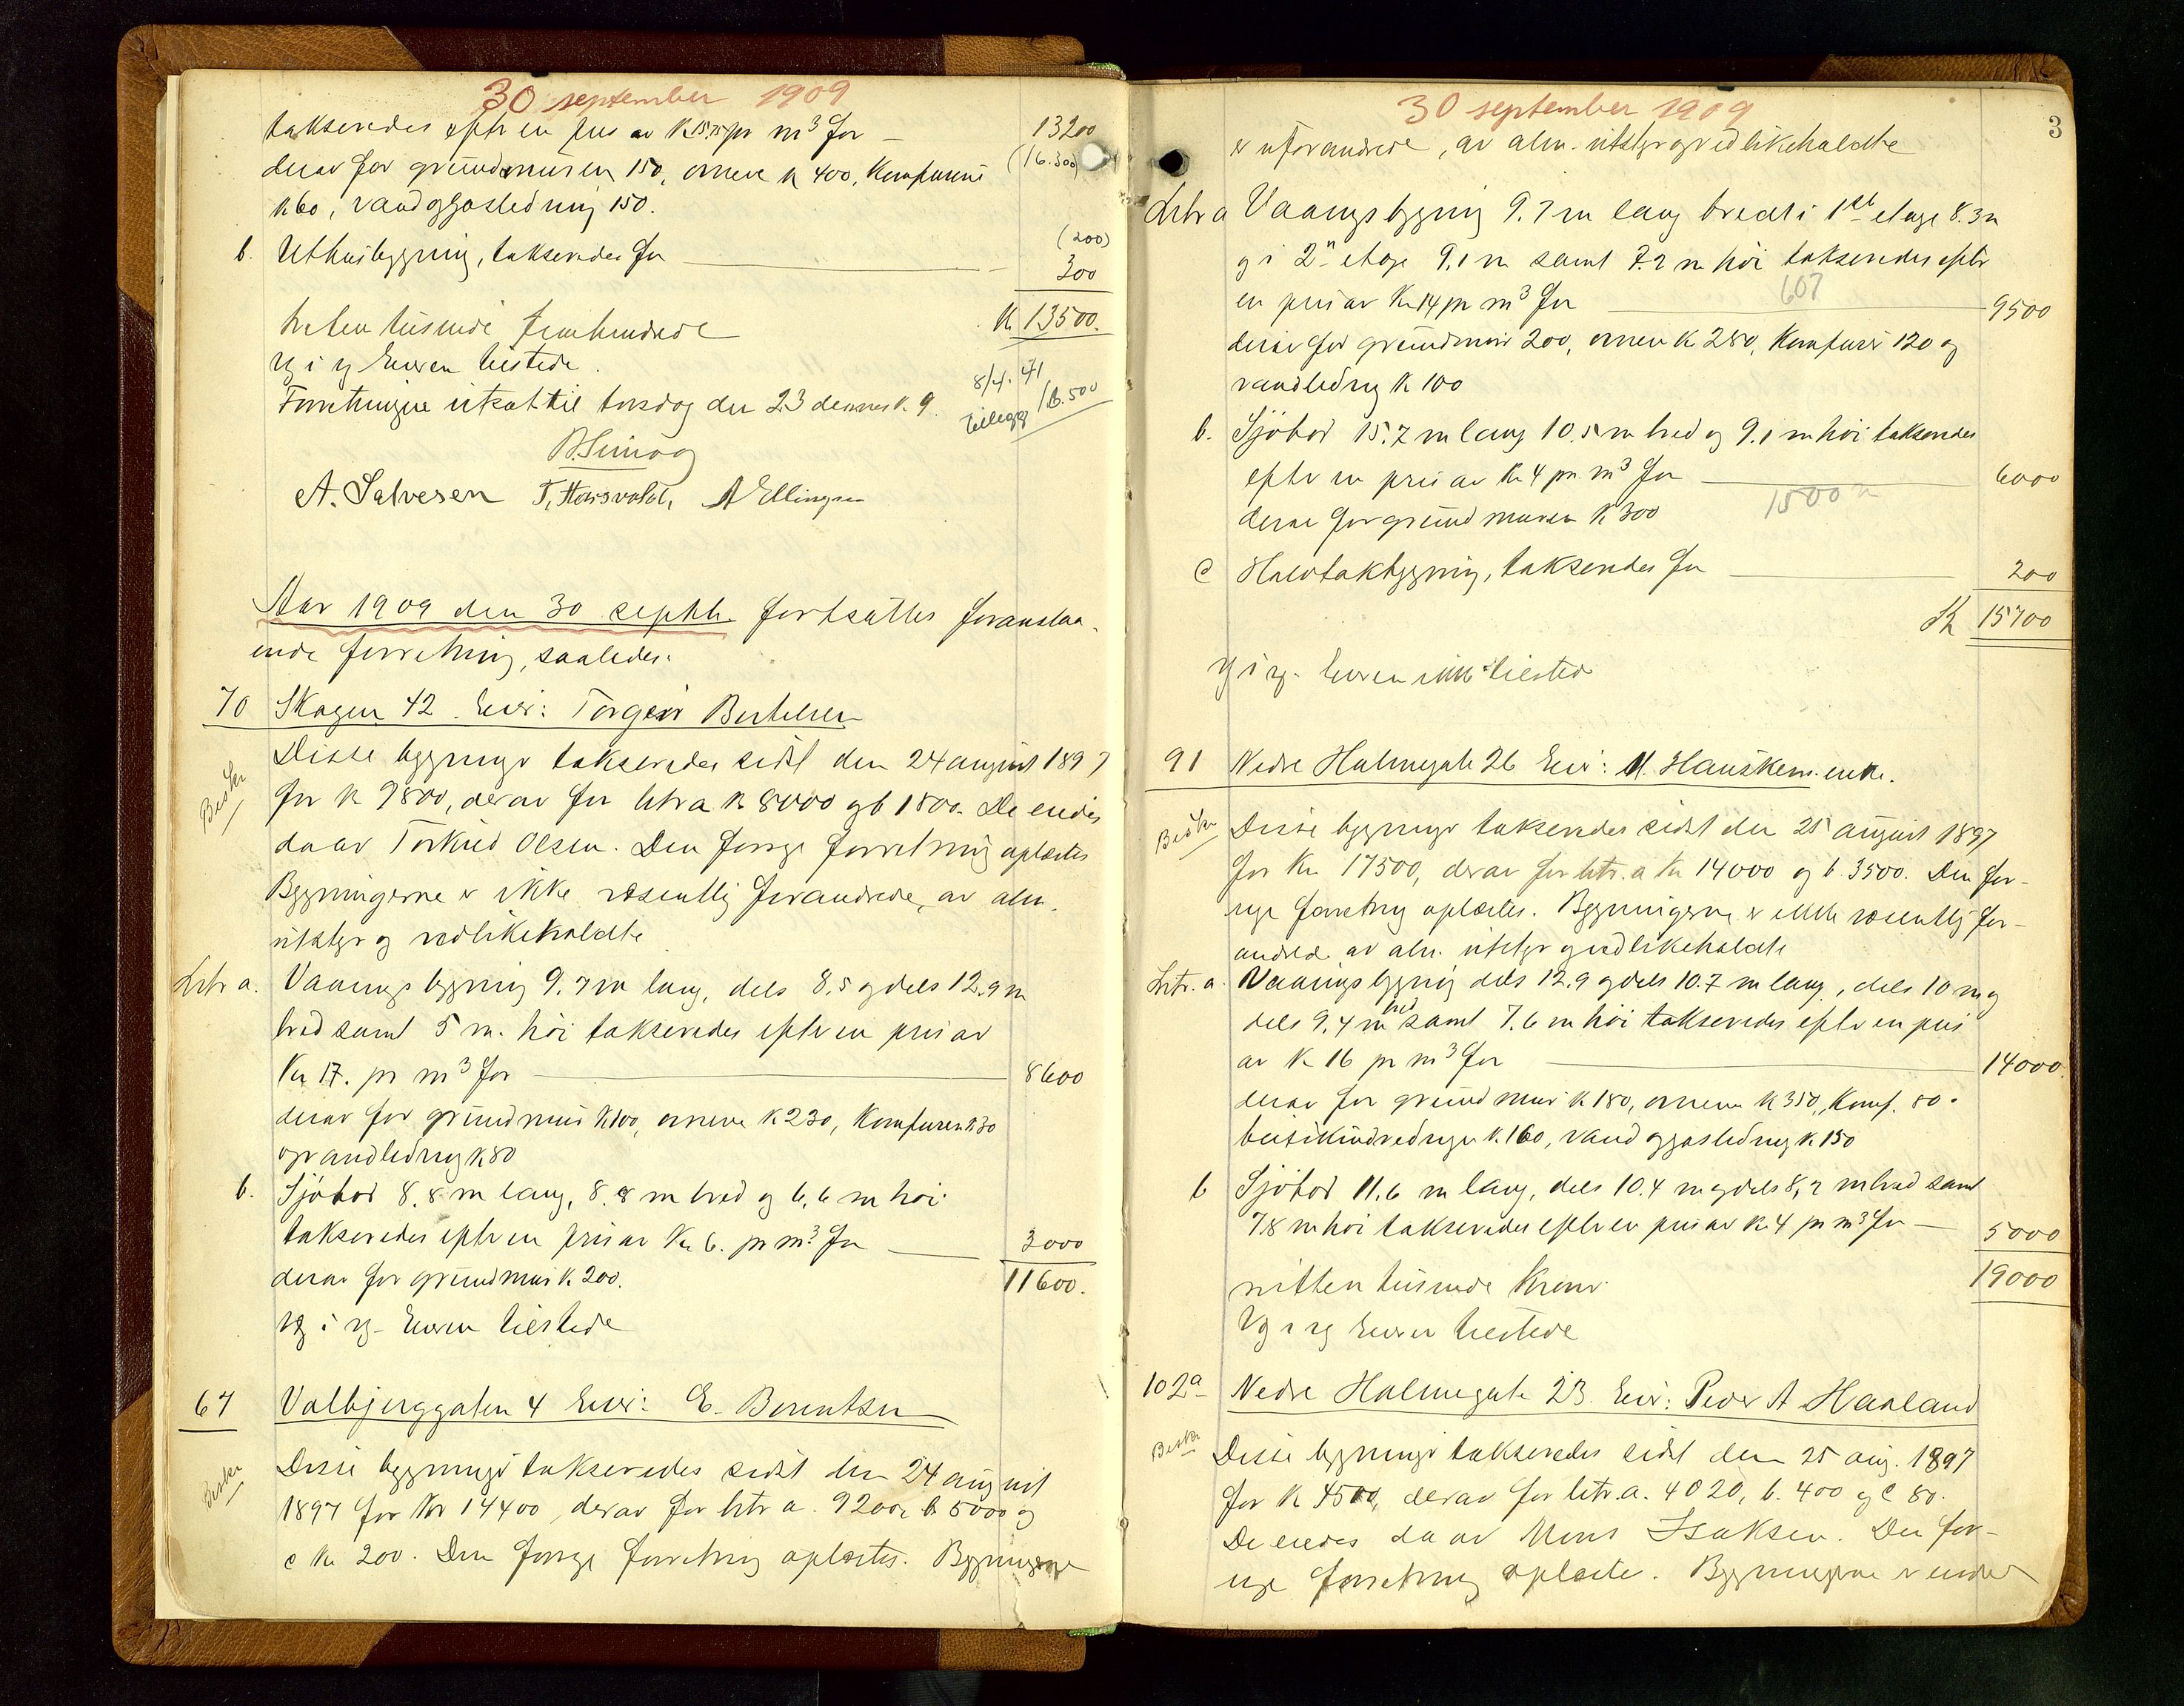 30 september 1909
takseredes efter en pris av K 15.75 pr m³ for — 13200
derav for grundmuren 150, ovnene K 400, Komfurene (16.300)
K 60, vand og gasledning 150.
b. Uthusbygning, takseredes for — (200) 300
tretten tusinde femhundrede K 13500.
Vg i vg Eieren tilstede.
Forretningen utsat til torsdag den 23 dennes k. 9.
8/4. 41 tillegg 16.500
A. Salvesen T. Hoisvoldt, A Ellingsen
Aar 1909 den 30 septbr. fortsattes foranstaa-
ende forretning, saaledes:
70 Skagen 42. Eier: Torgeir Bertelsen
Beskr Disse bygninger takseredes sidst den 24 august 1897
for K 9800, derav for litr a K 8000 og b 1800. De eiedes
da av Torkild Olsen. Den forrige forretning oplæstes
Bygningerne er ikke væsentlig forandrede, av alm.
utstyr og vedlikeholdte
Litr a. Vaaningsbygning 9.7 m lang, dels 8,5 og dels 12.9 m
bred samt 5 m. høi takseredes efter en pris av
Kr 17. pr m³ for — 8600
derav for grundmur K 100, ovnene K 230, Komfuren K 30
og vandledning K 80
b. Sjøbod 8.8 m lang, 8.8 m bred og 6,6 m høi
takseredes efter en pris av Kr 6. pr m³. for — 3000
derav for grundmur K 200. 11600.
Vg i vg- Eieren tilstede
67 Valbjerggaten 4 Eier: E. Berentsen
Beskr Disse bygninger takseredes sidst den 24 august
1897 for Kr 14400, derav for litr a. 9200, b 5000 og
c Kr 200. Den forrige forretning oplæstes. Bygningerne
30 september 1909
3
er uforandrede, av alm. utstyr og vedlikeholdte
Litr a Vaaningsbygning 9.7 m lang bredt i 1ste etage 8.3 m
og i 2n etage 9,1 m samt 7.2 m høi takseredes efter
en pris av Kr 14 pr m³ for — 607 9500
derav for grundmur 200, ovnen K 280, Komfurer 120 og
vandledning K 100
b. Sjøbod 15.7 m lang 10.5 m bred og 9.1 m høi takseredes
efter en pris av Kr 4 pr. m³ for — 6000
derav for grundmuren K 300 1500
c Halvtakbygning, takseredes for — 200
K 15700
Vg i vg. Eieren ikke tilstede
91 Nedre Holmegate 26 Eier: M. Hauskens enke.
Beskr Disse bygninger takseredes sidst den 25 august 1897
for Kr 17500, derav for litr. a Kr 14000 og b 3500. Den for-
rige forretning oplæstes. Bygningerne er ikke væsentlig for-
andrede. av alm. utstyr og vedlikeholdte
Litr. a. Vaaningsbygning dels 12.9 og dels 10.7 m lang, dels 10 m og
dels 9,4 m bred samt 7.6 m høi takseredes efter en pris
av K 16 pr m³ for — 14000.
derav for grundmur K 180, ovnene K 350, Komf. 80.
beisikindredninger K. 160, vand og gasledning K. 150
b Sjøbod 11.6 m lang, dels 10.4 m og dels 8,2 m bred samt
7.8 m høi takseredes efter en pris av K 4 pr m³ for — 5000
nitten tusinde Kroner 19000
Vg i vg Eieren tilstede
102a Nedre Holmegate 23. Eier: Peder A Haaland
Beskr Disse bygninger takseredes sidst den 25 aug. 1897
for K 4500, derav for litr. a. 4020, b. 400 og c 80.
De eiedes da av Mons Isaksen. Den for-
rige forretning oplæste. Bygningerne er under